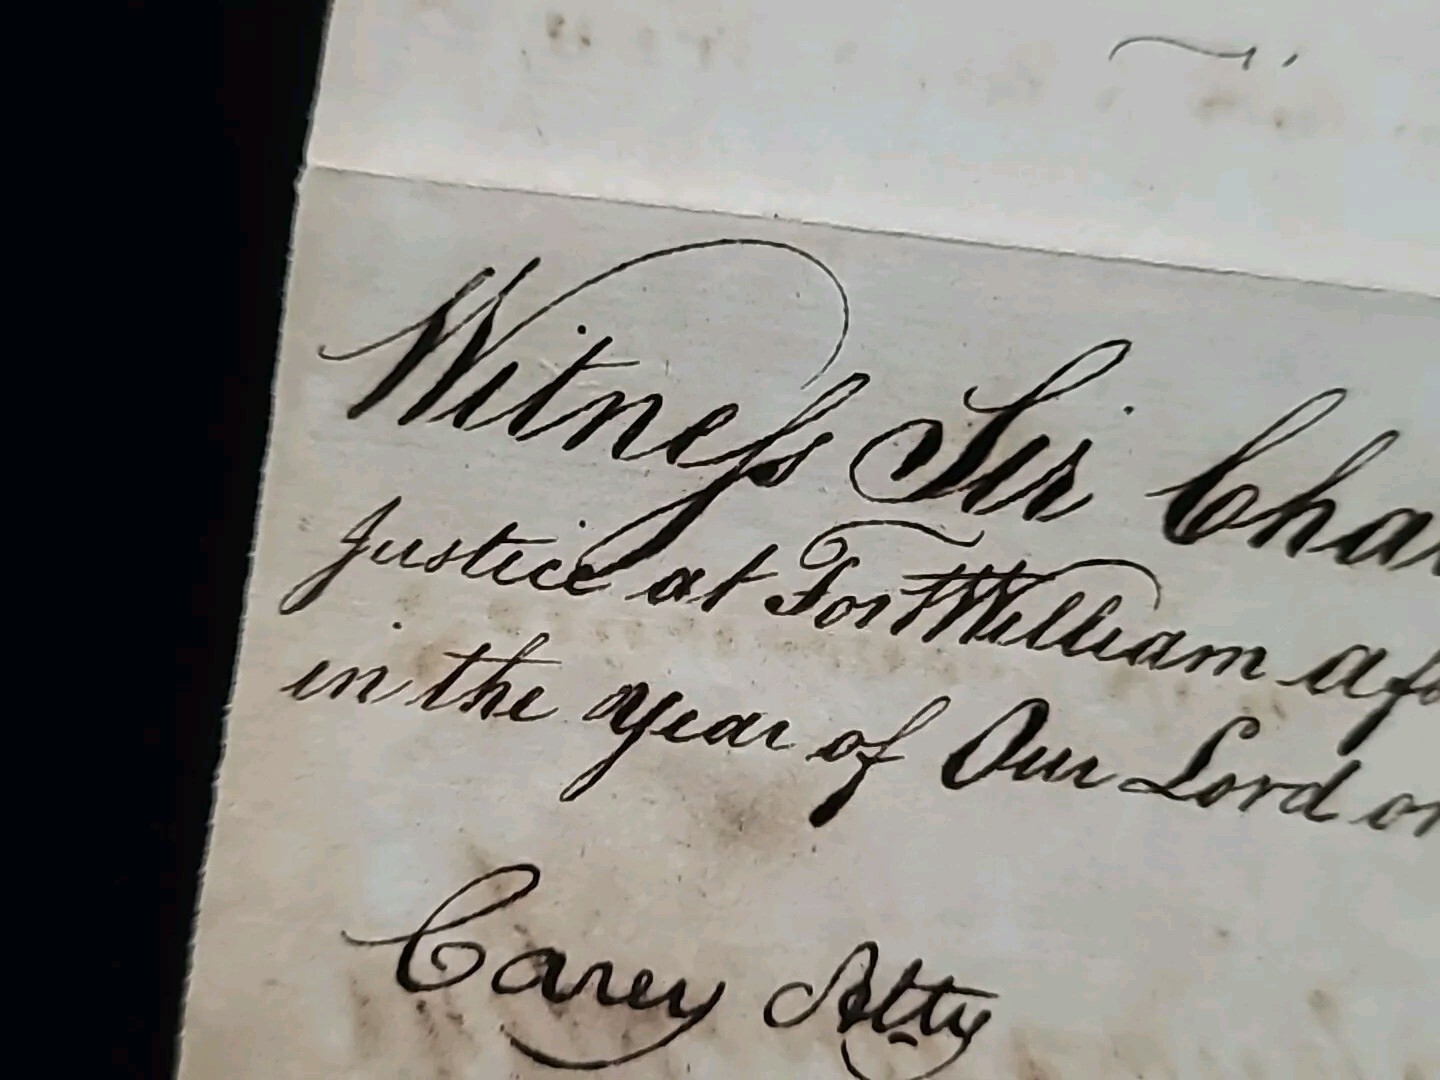 Witneſs Sir Cha
Justice at Fort William afo
in the year of Our Lord on
Carey Atty